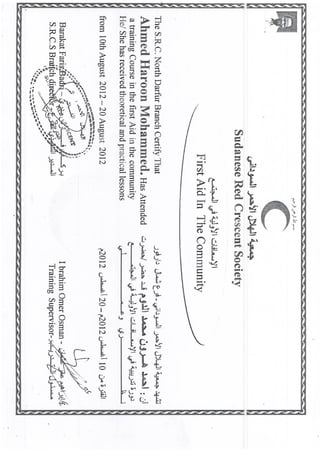 جمعية الهلال الأحمر السوداني
Sudanese Red Crescent Society
الإسعافات الأولية في المجتمع
First Aid In The Community
The S.R.C. North Darfur Branch Certify That
Ahmed Haroon Mohammed. Has Attended
a training Course in the first Aid in the community
He/ She has received theoretical and practical lessons
from 10th August 2012 – 20 August 2012
تشهد جمعية الهلال الأحمر السوداني، فرع شمال دارفور
أن : أحمد هارون محمد آدم قد حضر / حضرت
دورة تدريبية في الإسعافات الأولية في المجتمع
الفترة من 10 أغسطس 2012م – 20 أغسطس 2012م
Barakat Farig
S.R.C.S Branch director
I brahim Omer Osman
Training Supervisor